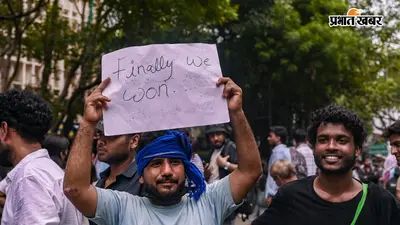 प्रभात खबर
Finally we
won.